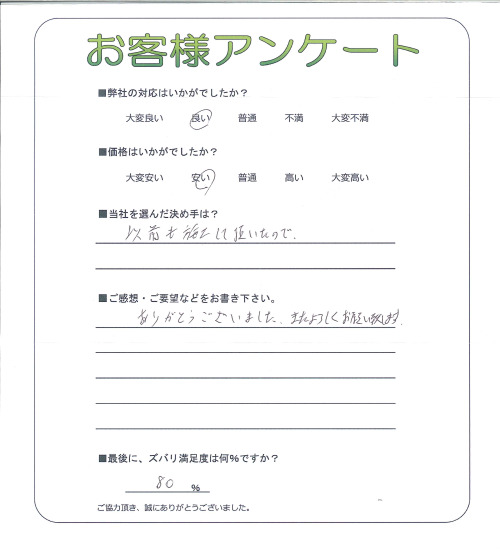 お客様アンケート
■弊社の対応はいかがでしたか？
大変良い 良い 普通 不満 大変不満
■価格はいかがでしたか？
大変安い 安い 普通 高い 大変高い
■当社を選んだ決め手は？
以前も施工して頂いたので.
■ご感想・ご要望などをお書き下さい。
ありがとうございました. またよろしくお願い致します.
■最後に、ズバリ満足度は何%ですか？
80 %
ご協力頂き、誠にありがとうございました。